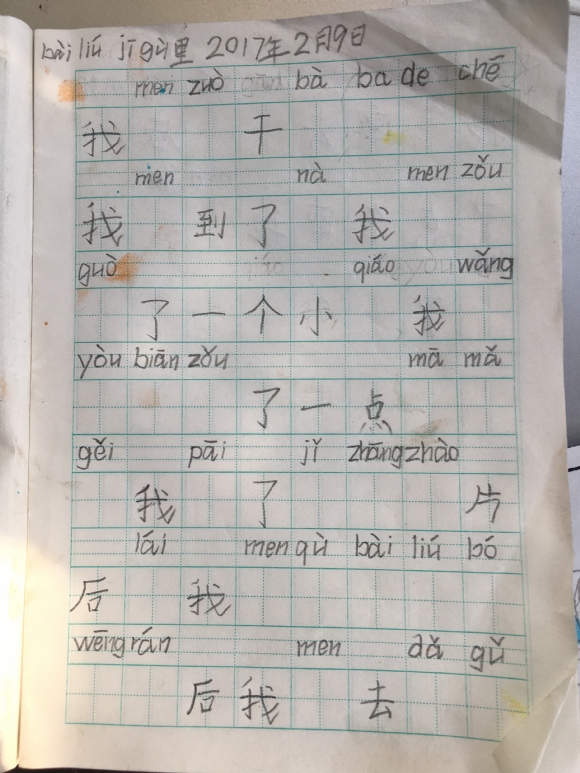 bài liú jī gù里 2017年2月9日
men zuò bà ba de chē
我 干
men nà men zǒu
我 到 了 我
guò qiáo wǎng
了 一 个 小 我
yòu biān zǒu mā mǎ
了 一 点
gěi pāi jǐ zhāng zhào
我 了 片
lái men qù bài liú bó
后 我
wēng rán men dǎ gǔ
后 我 去